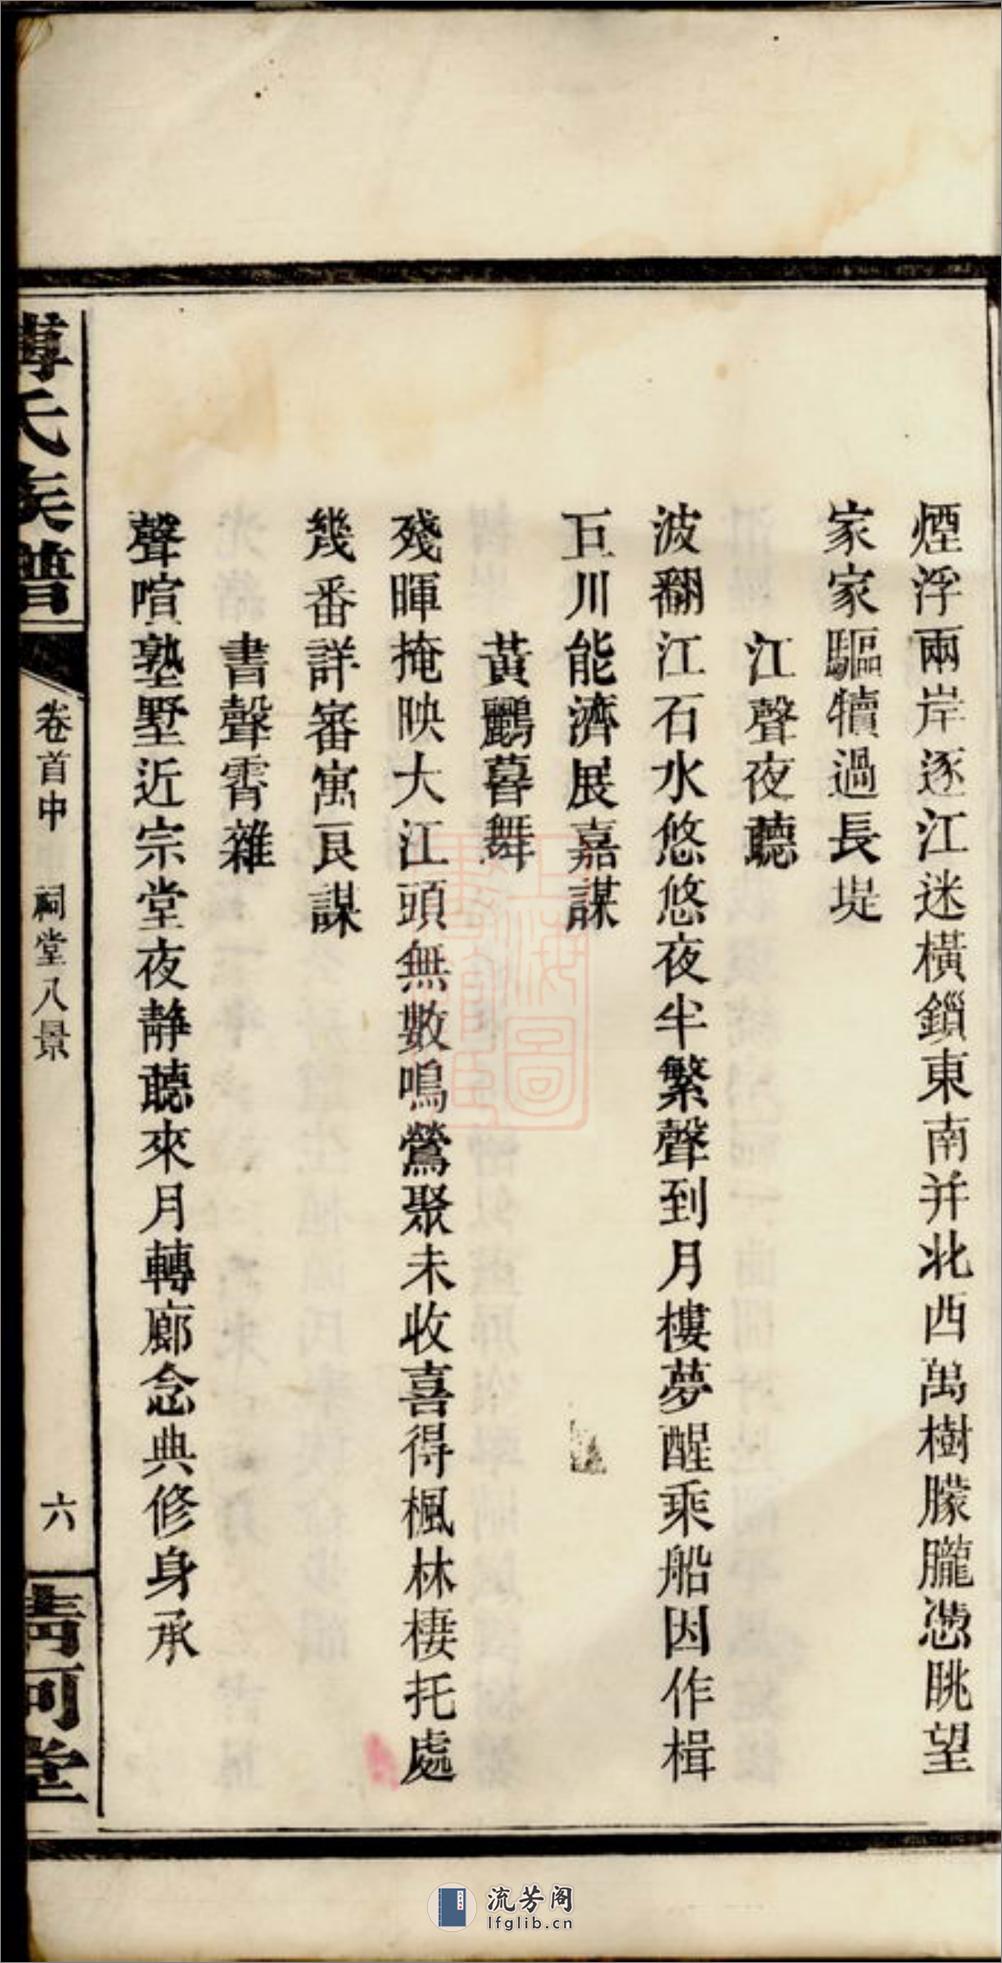 煙浮兩岸逐江迷橫鎻東南并北西萬樹朦朧憑眺望
家家驅犢過長堤
江聲夜聽
波翻江石水悠悠夜半繁聲到月樓夢醒乘船因作楫
巨川能濟展嘉謀
黃鸝暮舞
殘暉掩映大江頭無數鳴鶯聚未收喜得楓林棲托處
幾番詳審寓良謀
書聲霄雜
聲喧塾墅近宗堂夜靜聽來月轉廊念典修身承
傅氏族譜
卷首中
祠堂八景
六
清河堂
上海圖書館藏
流芳阁
lfglib.cn